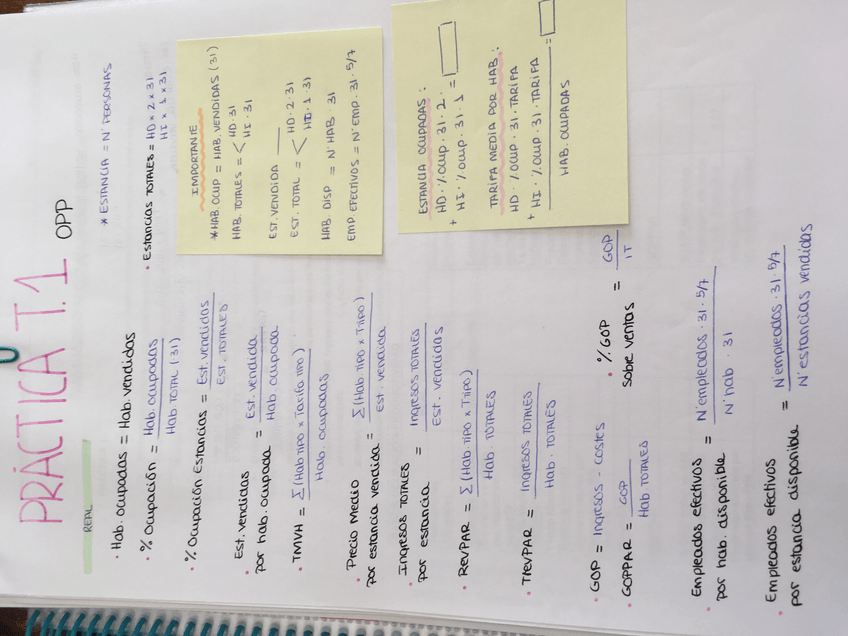 PRÁCTICA T.1 OPP
RETAL
* ESTANCIA = Nº PERSONAS
• Hab. ocupadas = Hab. vendidas
• % Ocupación = Hab. ocupadas
Hab TOTAL (31)
• Estancias TOTALES = HD × 2 × 31
HI × 1 × 31
• % Ocupación Estancias = Est. vendidas
Est. TOTALES
• Est. vendidas
por hab. ocupada = Est. vendida
Hab. ocupada
• TMVH = Σ(Hab TIPO × Tarifa TIPO)
Hab. ocupadas
• Precio Medio
por estancia vendida = Σ(Hab TIPO × TTIPO)
Est. vendida
• Ingresos TOTALES
por estancia = Ingresos TOTALES
Est. vendidas
• RevPAR = Σ(Hab TIPO × TTIPO)
Hab. TOTALES
• TrevPAR = Ingresos TOTALES
Hab. TOTALES
• GOP = Ingresos - costes
• GOPPAR = GOP
Hab TOTALES
• % GOP
sobre ventas = GOP
IT
• Empleados efectivos
por hab. disponible = Nº empleados · 31 · 5/7
Nº hab · 31
• Empleados efectivos
por estancia disponible = Nº empleados · 31 · 5/7
Nº estancias vendidas
IMPORTANTE
* HAB. OCUP = HAB. VENDIDAS (31)
HAB. TOTALES = < HD · 31
HI · 31
EST. VENDIDA ___
EST. TOTAL = < HD · 2 · 31
HD · 1 · 31
HAB. DISP = Nº HAB · 31
EMP. EFECTIVOS = Nº EMP. 31 · 5/7
ESTANCIA OCUPADAS:
HD · % OCUP · 31 · 2 ·
+ HI · % OCUP · 31 · 1 =
TARIFA MEDIA POR HAB:
HD · % OCUP · 31 · TARIFA
+ HI · % OCUP · 31 · TARIFA =
HAB. OCUPADAS